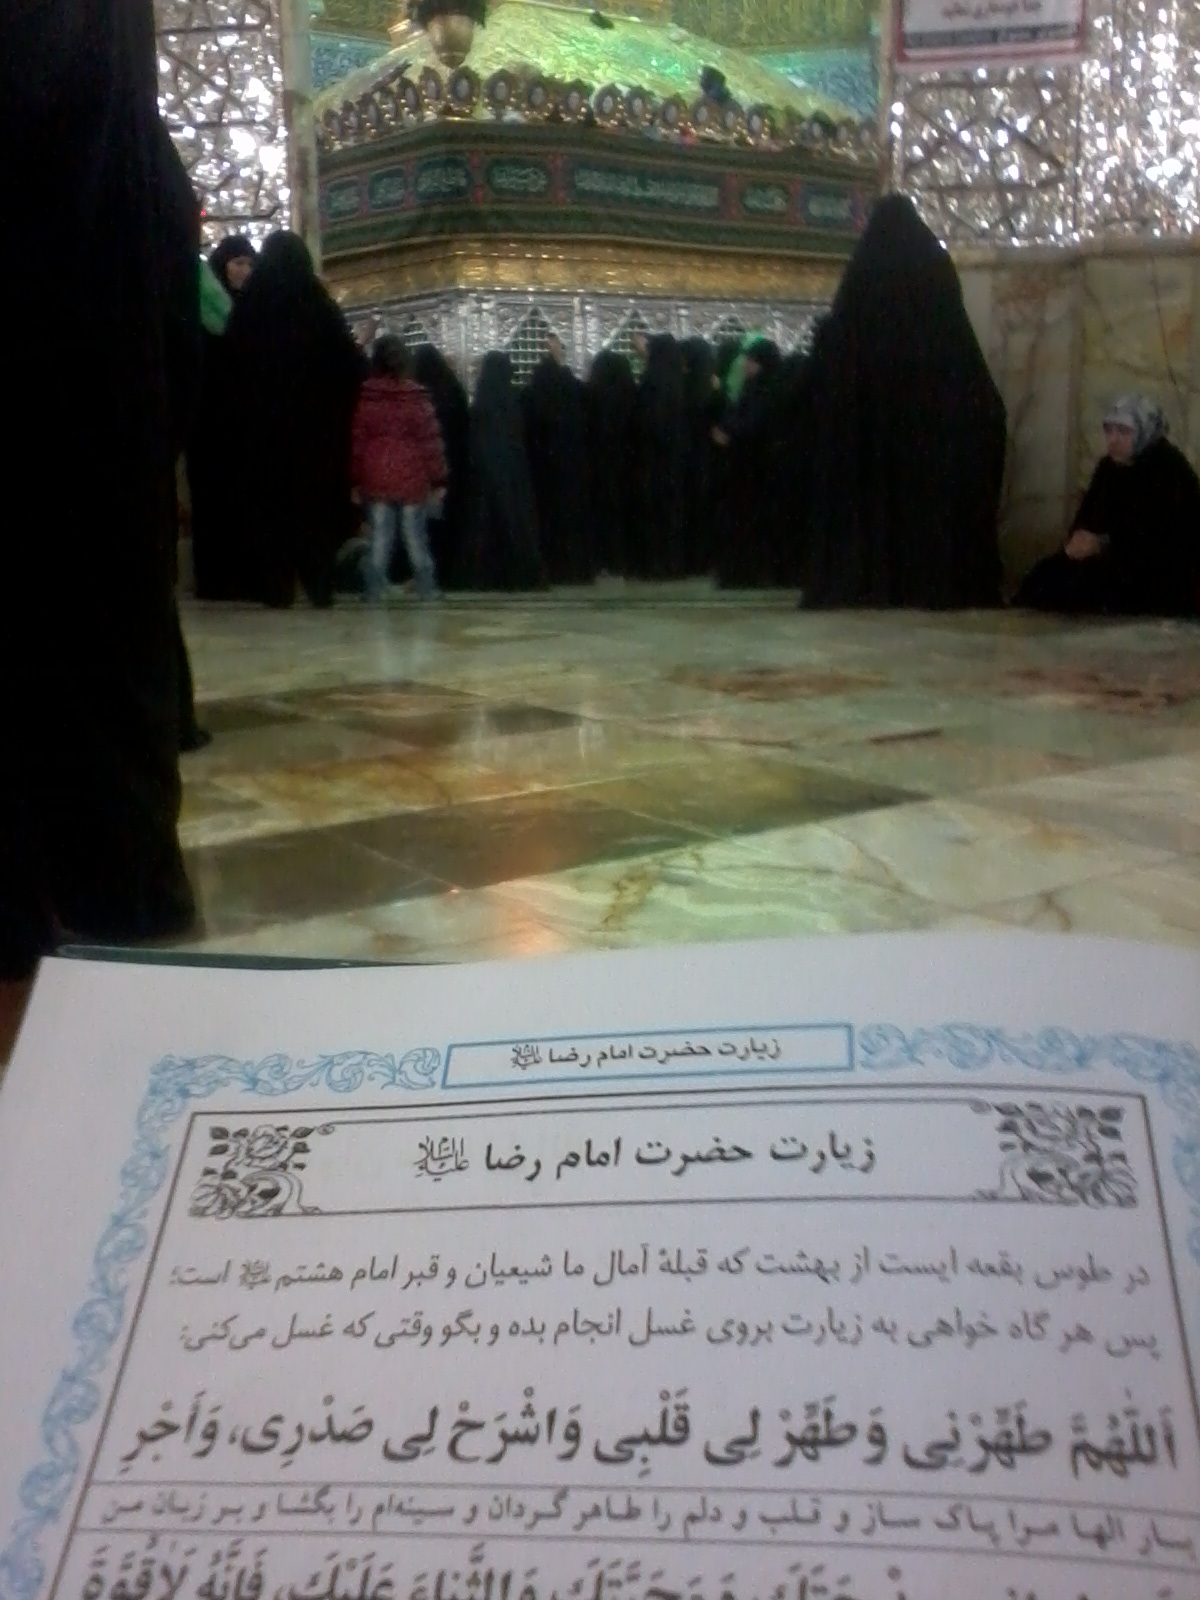 زیارت حضرت امام رضا علیه السلام
زیارت حضرت امام رضا علیه السلام
در طوس بقعه ایست از بهشت که قبلهٔ آمال ما شیعیان و قبر امام هشتم علیه السلام است؛
پس هر گاه خواهی به زیارت بروی غسل انجام بده و بگو وقتی که غسل می‌کنی:
اَللّٰهُمَّ طَهِّرْنِی وَطَهِّرْ لِی قَلْبِی وَاشْرَحْ لِی صَدْرِی، وَأَجْرِ
بار الها مرا پاک ساز و قلب و دلم را طاهر گردان و سینه‌ام را بگشا و بر زبان من
وَمَحَبَّتَكَ وَالثَّناءَ عَلَيْكَ، فَإِنَّهُ لَاٰقُوَّةَ